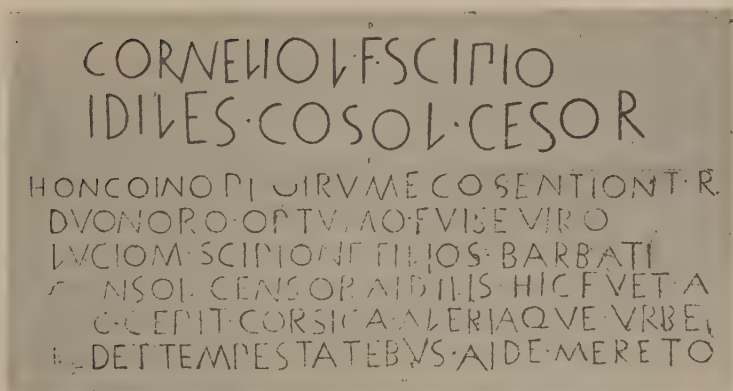 CORNELIO·L·F·SCIPIO
IDILES·COSOL·CESOR
HONC OINO PLOIRVME COSENTIONT·R.
DVONORO·OPTVMO·FVISE VIRO
LVCIOM·SCIPIONE FILIOS·BARBATI
NSOL CENSOR AIDILIS·HIC FVET·A
C·CEPIT·CORSICA·ALERIAQVE·VRBE
DET TEMPESTATEBVS·AIDE·MERETO